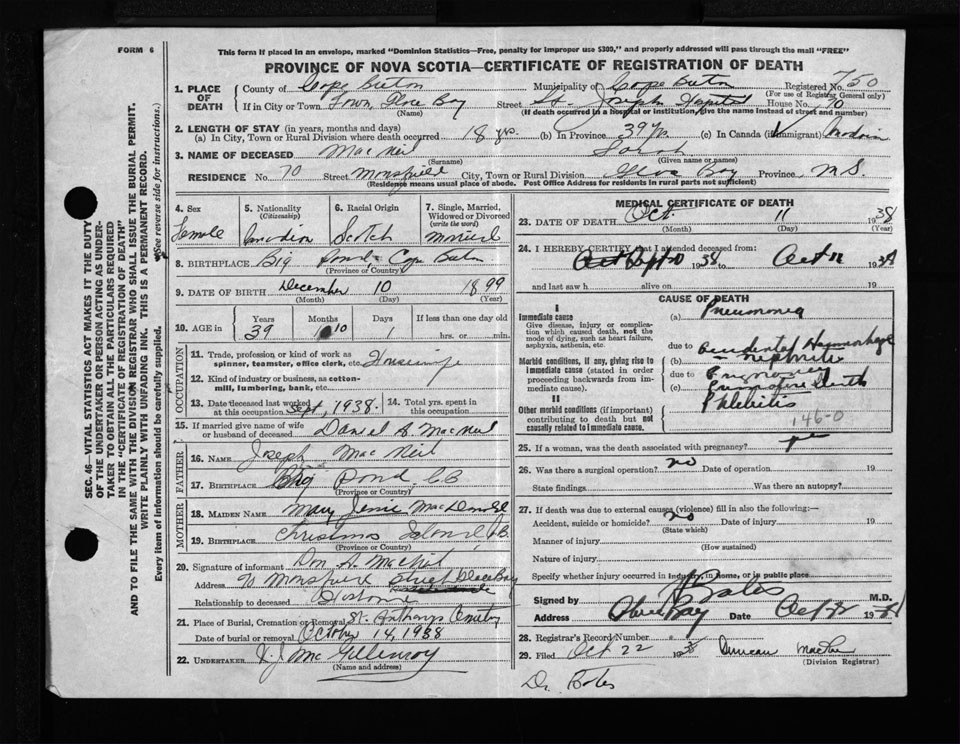 FORM 6
This form if placed in an envelope, marked "Dominion Statistics—Free, penalty for improper use $300," and properly addressed will pass through the mail "FREE"
PROVINCE OF NOVA SCOTIA—CERTIFICATE OF REGISTRATION OF DEATH
SEC. 46—VITAL STATISTICS ACT MAKES IT THE DUTY
OF THE UNDERTAKER OR PERSON ACTING AS UNDER-
TAKER TO OBTAIN ALL THE PARTICULARS REQUIRED
IN THE "CERTIFICATE OF REGISTRATION OF DEATH"
AND TO FILE THE SAME WITH THE DIVISION REGISTRAR WHO SHALL ISSUE THE BURIAL PERMIT.
WRITE PLAINLY WITH UNFADING INK. THIS IS A PERMANENT RECORD.
Every item of information should be carefully supplied. (See reverse side for instructions.)
1. PLACE OF DEATH County of Cape Breton Municipality of Cape Breton Registered No. 750
(For use of Registrar General only)
If in City or Town Town, Glace Bay Street St. Joseph Hospital House No. 70
(Name) (If death occurred in a hospital or institution, give the name instead of street and number)
2. LENGTH OF STAY (in years, months and days)
(a) In City, Town or Rural Division where death occurred 18 yrs. (b) In Province 39 yrs (c) In Canada (if immigrant)
3. NAME OF DECEASED MacNeil Sarah
(Surname) (Given name or names)
RESIDENCE No. 70 Street City, Town or Rural Division Glace Bay Province N.S.
(Residence means usual place of abode. Post Office Address for residents in rural parts not sufficient)
4. Sex Female
5. Nationality (Citizenship) Canadian
6. Racial Origin Scotch
7. Single, Married, Widowed or Divorced (write the word) Married
8. BIRTHPLACE Big Pond, Cape Breton
(Province or Country)
9. DATE OF BIRTH December 10 1899
(Month) (Day) (Year)
10. AGE in Years 39 Months 10 Days 1 If less than one day old
hrs. or min.
OCCUPATION
11. Trade, profession or kind of work as spinner, teamster, office clerk, etc. Housewife
12. Kind of industry or business, as cotton-mill, lumbering, bank, etc.
13. Date deceased last worked at this occupation Sept, 1938. 14. Total yrs. spent in this occupation
15. If married give name of wife or husband of deceased Daniel A. MacNeil
FATHER
16. Name Joseph MacNeil
17. Birthplace Big Pond, C.B
(Province or Country)
MOTHER
18. Maiden Name Mary Jessie MacDonald
19. Birthplace Christmas Island C.B.
(Province or Country)
20. Signature of informant Dan A. MacNeil
Address 70 Street Glace Bay
Relationship to deceased Husband
21. Place of Burial, Cremation or Removal St. Anthonys Cemetery
Date of burial or removal October 14, 1938
22. UNDERTAKER
(Name and address)
MEDICAL CERTIFICATE OF DEATH
23. DATE OF DEATH Oct. 11 1938
(Month) (Day) (Year)
24. I HEREBY CERTIFY that I attended deceased from:
Sept 10 1938 to Oct 11 1938
and last saw h alive on 19
CAUSE OF DEATH
I
Immediate cause
Give disease, injury or complication which caused death, not the mode of dying, such as heart failure, asphyxia, asthenia, etc.
(a) Pneumonia
due to Accidental Haemorrhage
Morbid conditions, if any, giving rise to immediate cause (stated in order proceeding backwards from immediate cause).
(b) nephritis
due to Pregnancy
(c) Premature Birth
II
Other morbid conditions (if important) contributing to death but not causally related to immediate cause.
Phlebitis
146-0
25. If a woman, was the death associated with pregnancy? yes
26. Was there a surgical operation? no Date of operation 19
State findings Was there an autopsy?
27. If death was due to external causes (violence) fill in also the following:—
Accident, suicide or homicide? no Date of injury 19
(State which)
Manner of injury
(How sustained)
Nature of injury
Specify whether injury occurred in industry, in home, or in public place
Signed by Bates M.D.
Address Glace Bay Date Oct 12 1938
28. Registrar's Record Number
29. Filed Oct 22 1938 Duncan
(Division Registrar)
Dr. Bates